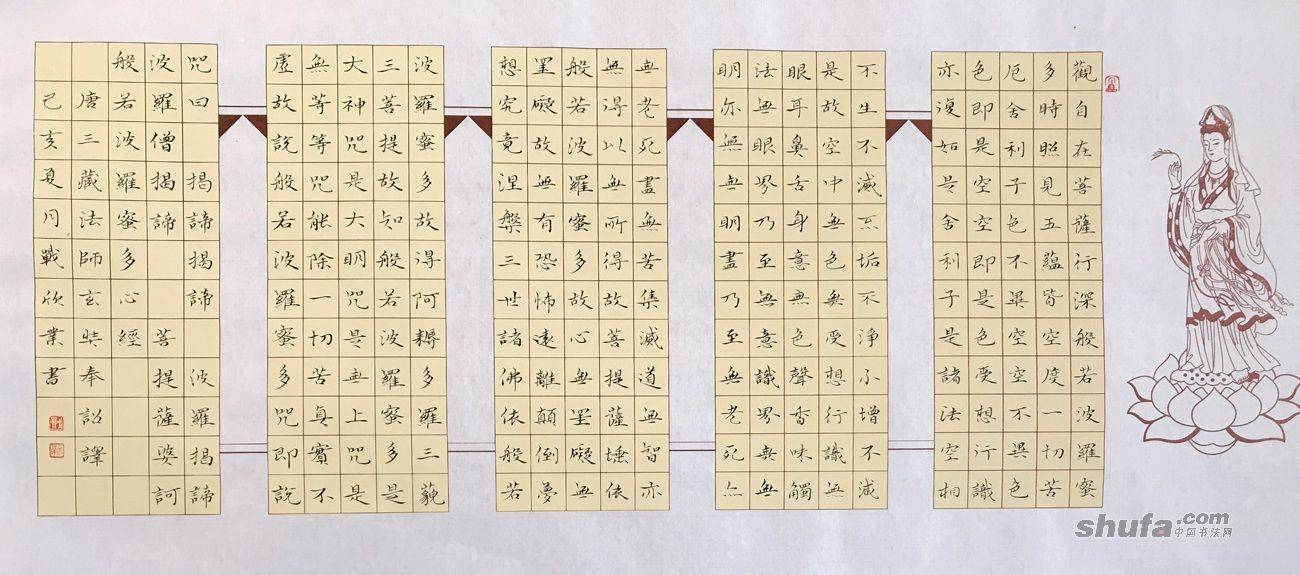 觀自在菩薩行深般若波羅蜜
多時照見五蘊皆空度一切苦
厄舍利子色不異空空不異色
色即是空空即是色受想行識
亦復如是舍利子是諸法空相
不生不滅不垢不淨不增不減
是故空中無色無受想行識無
眼耳鼻舌身意無色聲香味觸
法無眼界乃至無意識界無無
明亦無無明盡乃至無老死亦
無老死盡無苦集滅道無智亦
無得以無所得故菩提薩埵依
般若波羅蜜多故心無罣礙無
罣礙故無有恐怖遠離顛倒夢
想究竟涅槃三世諸佛依般若
波羅蜜多故得阿耨多羅三藐
三菩提故知般若波羅蜜多是
大神咒是大明咒是無上咒是
無等等咒能除一切苦真實不
虛故說般若波羅蜜多咒即說
咒曰 揭諦揭諦 波羅揭諦
波羅僧揭諦 菩提薩婆訶
般若波羅蜜多心經
唐三藏法師玄奘奉詔譯
己亥夏月戰欣業書
shufa.com
中国书法网